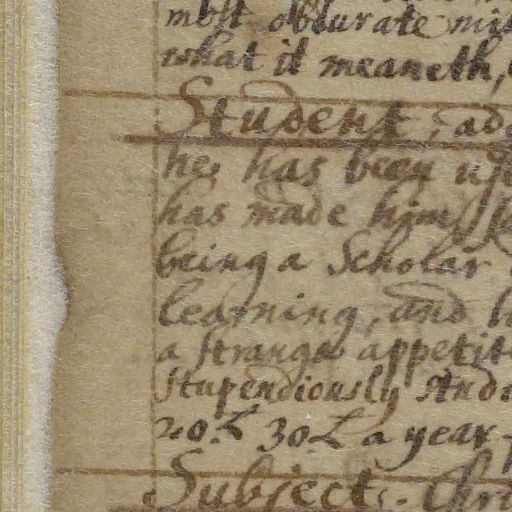 most obdurate
what it meaneth,
Student,
he has been
has made him
being a Scholar
learning, and
a strange
stupendiously
20.L 30.L a year
Subject.